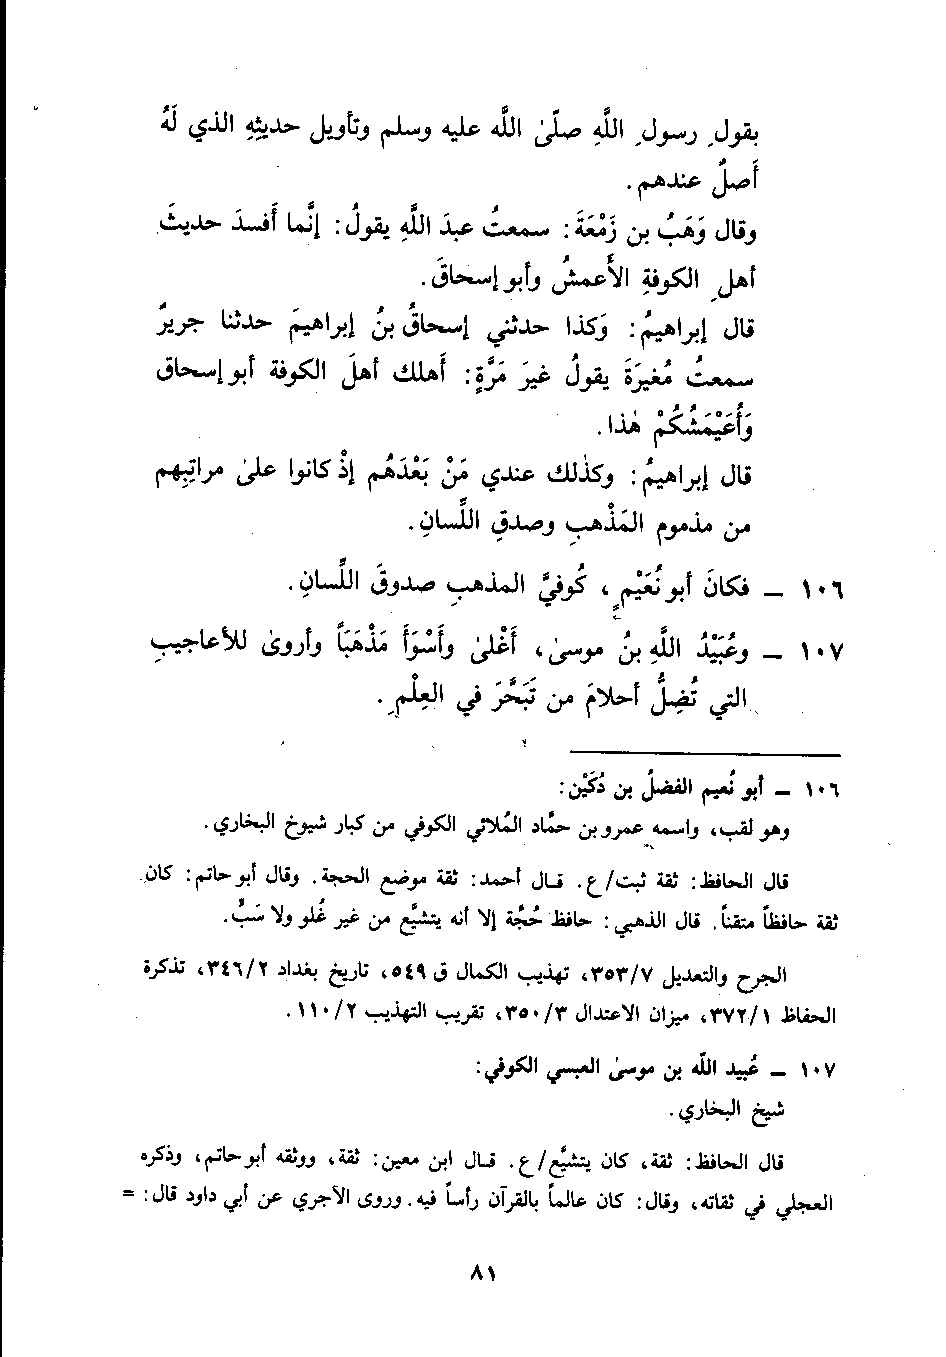 بقولِ رسولِ اللَّهِ صلّىٰ اللَّه عليه وسلم وتأويل حديثِهِ الذي لَهُ
أَصلٌ عندهم.
وقال وَهَبُ بن زَمْعَةَ: سمعتُ عبدَ اللَّهِ يقولُ: إنَّما أَفسدَ حديثَ
أهلِ الكوفةِ الأَعمشُ وأبو إسحاقَ.
قال إبراهيمُ: وَكذا حدثني إسحاقُ بنُ إبراهيمَ حدثنا جريرٌ
سمعتُ مُغيرَةَ يقولُ غيرَ مَرَّةٍ: أَهلك أهلَ الكوفة أبو إسحاق
وَأُعَيْمَشُكُمْ هٰذا.
قال إبراهيمُ: وكذٰلك عندي مَنْ بَعْدَهُم إذْ كانوا علىٰ مراتِبِهم
من مذموم المَذْهبِ وصدقِ اللِّسانِ.
١٠٦ ــ فكانَ أبو نُعَيْمٍ، كُوفيَّ المذهبِ صدوقَ اللِّسانِ.
١٠٧ ــ وعُبَيْدُ اللَّهِ بنُ موسىٰ، أَغْلىٰ وأَسْوَأَ مَذْهَبَاً وأروىٰ للأعاجيبِ
التي تُضِلُّ أحلامَ من تَبَحَّرَ في العِلْمِ.
١٠٦ ــ أبو نُعيم الفضلُ بن دُكَيْن:
وهو لقب، واسمه عمرو بن حمَّاد المُلائي الكوفي من كبار شيوخ البخاري.
قال الحافظ: ثقة ثبت/ع. قال أحمد: ثقة موضع الحجة. وقال أبو حاتم: كان
ثقة حافظاً متقناً. قال الذهبي: حافظ حُجَّة إلا أنه يتشيَّع من غير غُلو ولا سَبٍّ.
الجرح والتعديل ٣٥٣/٧، تهذيب الكمال ق ٥٤٩، تاريخ بغداد ٣٤٦/٢، تذكرة
الحفاظ ٣٧٢/١، ميزان الاعتدال ٣٥٠/٣، تقريب التهذيب ١١٠/٢.
١٠٧ ــ عُبيد اللَّه بن موسىٰ العبسي الكوفي:
شيخ البخاري.
قال الحافظ: ثقة، كان يتشيَّع/ع. قال ابن معين: ثقة، ووثقه أبو حاتم، وذكره
العجلي في ثقاته، وقال: كان عالماً بالقرآن رأساً فيه. وروى الآجري عن أبي داود قال: =
٨١